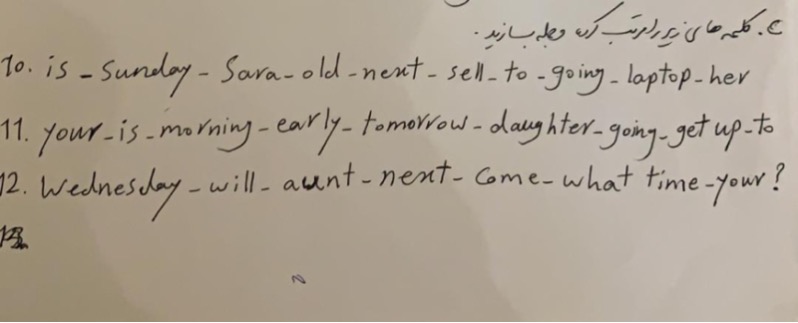 C. کلمه های زیر را مرتب کرده و جمله بسازید.
10. is - Sunday - Sara - old - next - sell - to - going - laptop - her
11. your - is - morning - early - tomorrow - daughter - going - get up - to
12. Wednesday - will - aunt - next - come - what time - your?